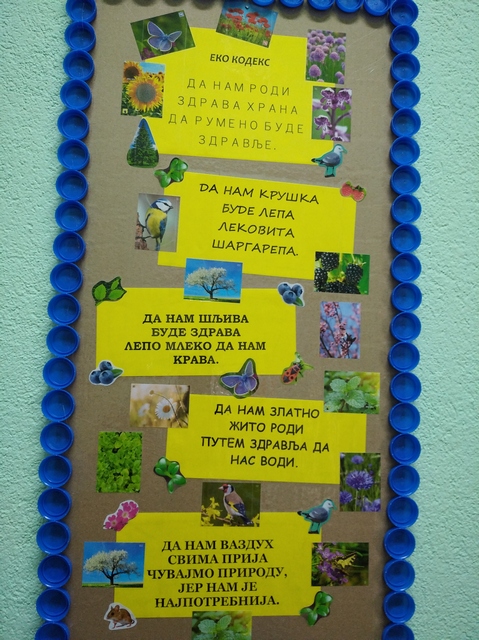 ЕКО КОДЕКС
ДА НАМ РОДИ
ЗДРАВА ХРАНА
ДА РУМЕНО БУДЕ
ЗДРАВЉЕ.
ДА НАМ КРУШКА
БУДЕ ЛЕПА
ЛЕКОВИТА
ШАРГАРЕПА.
ДА НАМ ШЉИВА
БУДЕ ЗДРАВА
ЛЕПО МЛЕКО ДА НАМ
КРАВА.
ДА НАМ ЗЛАТНО
ЖИТО РОДИ
ПУТЕМ ЗДРАВЉА ДА
НАС ВОДИ.
ДА НАМ ВАЗДУХ
СВИМА ПРИЈА
ЧУВАЈМО ПРИРОДУ,
ЈЕР НАМ ЈЕ
НАЈПОТРЕБНИЈА.